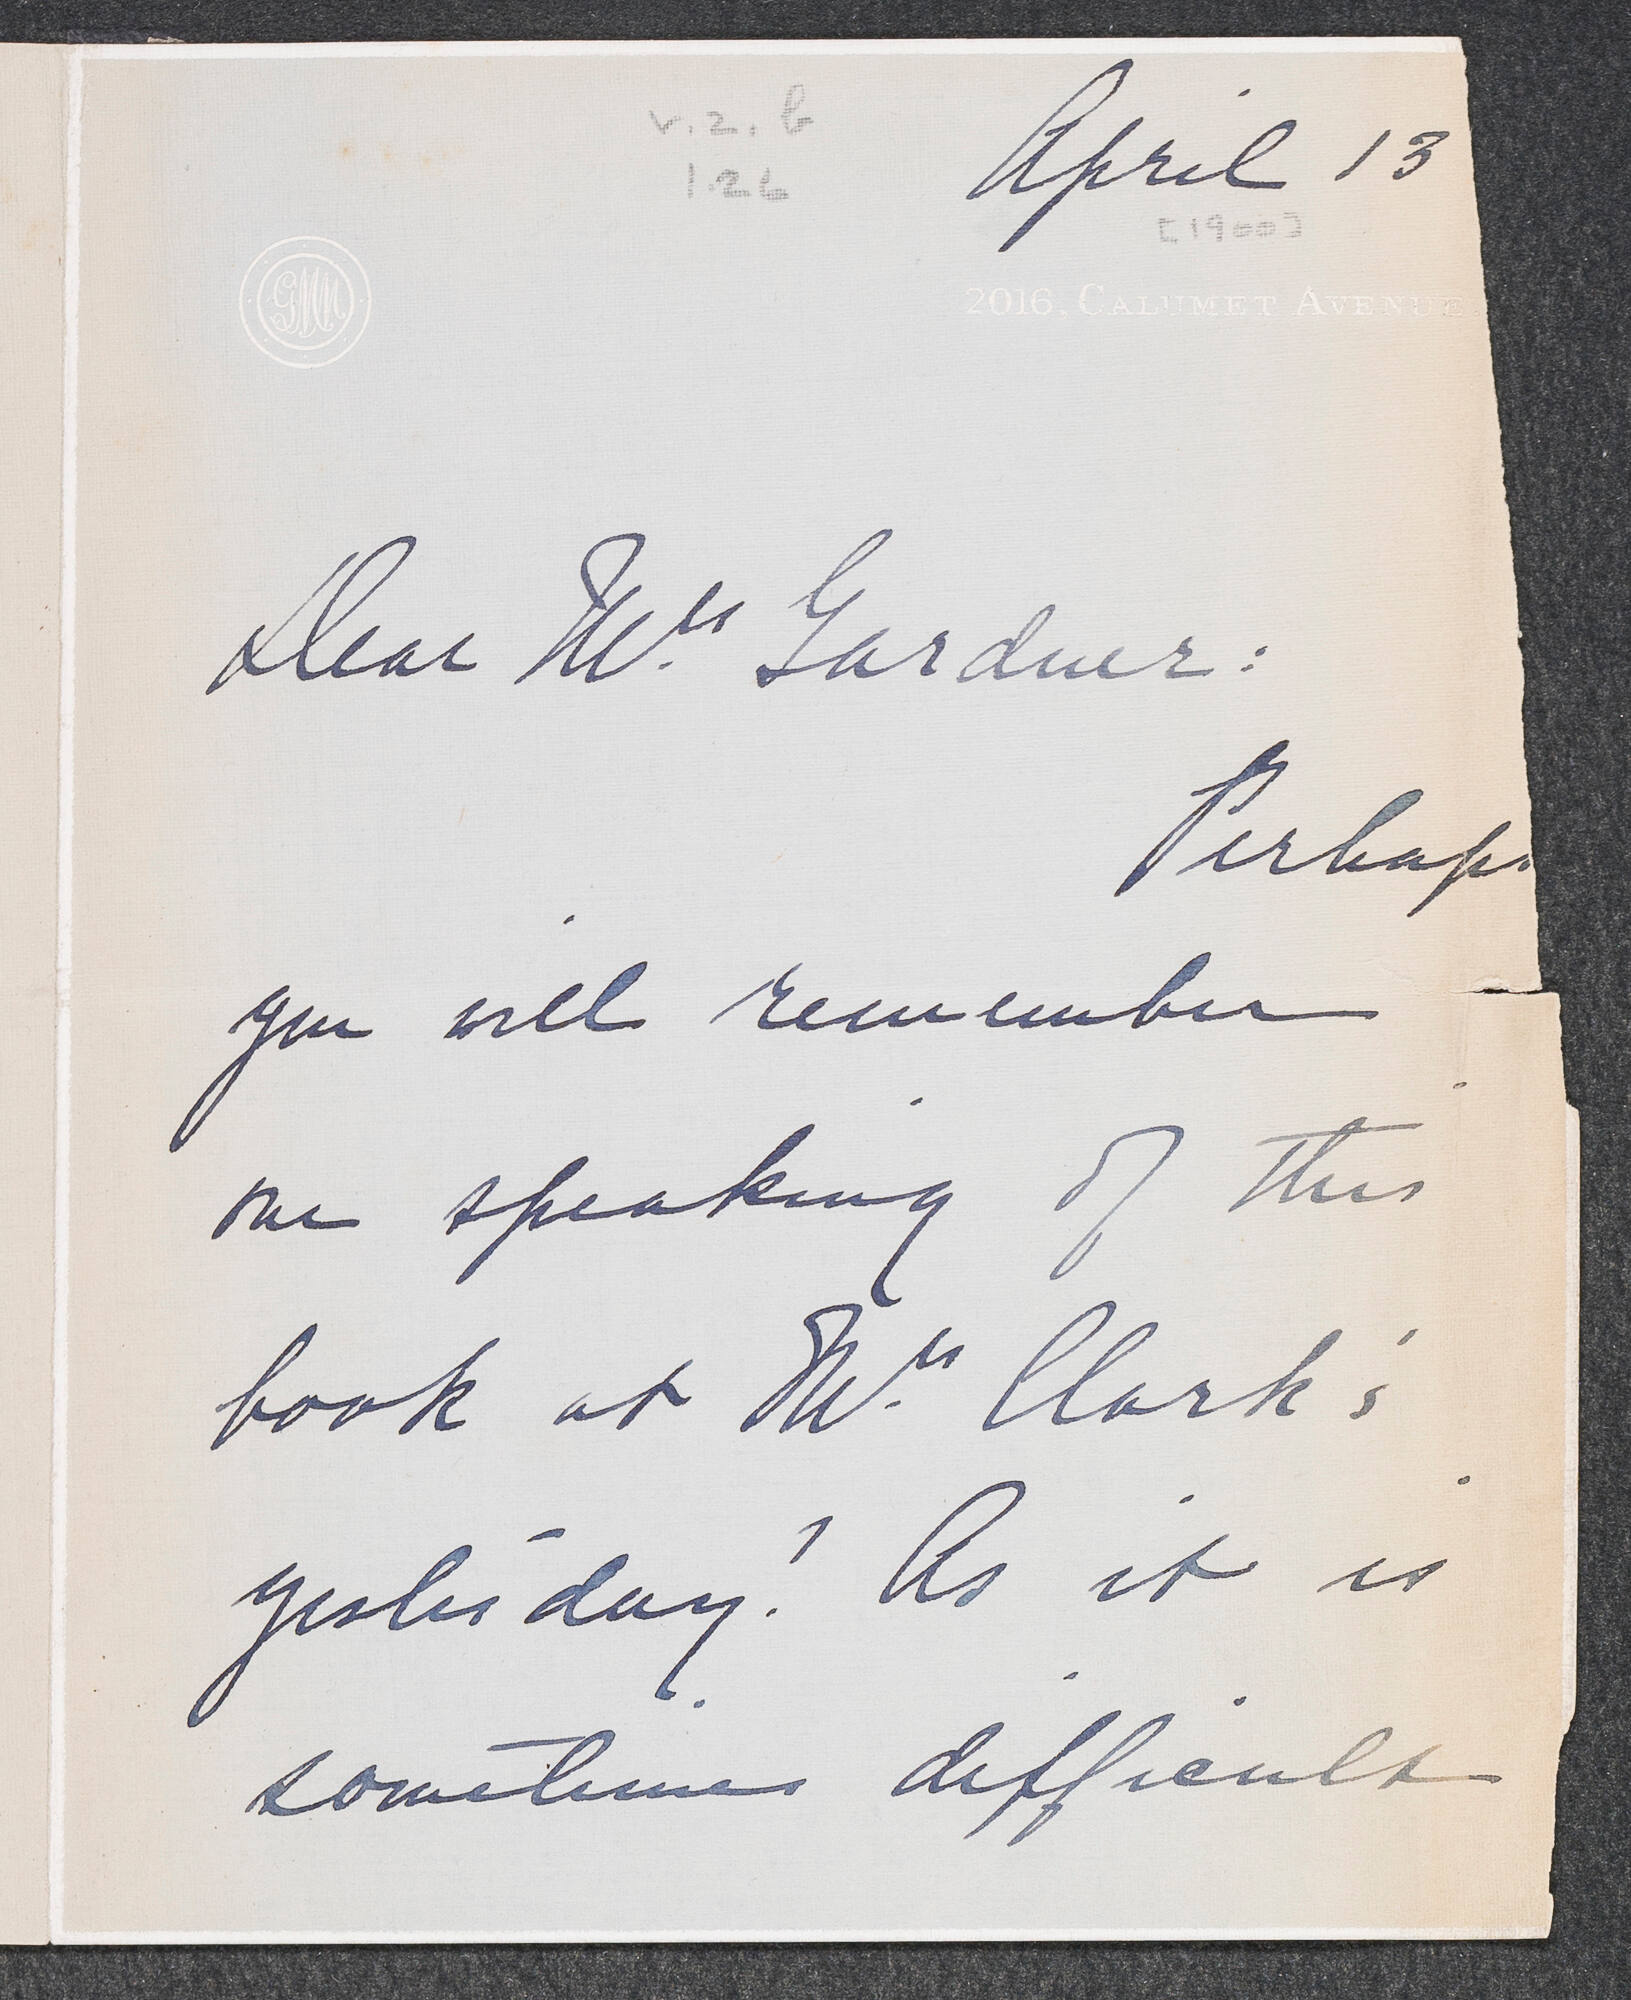 v.2.b
1.26
April 13
[1900]
GMM
2016, CALUMET AVENUE
Dear Mrs. Gardner:
Perhaps
you will remember
our speaking of this
book at Mrs. Clark's
yesterday! As it is
sometimes difficult